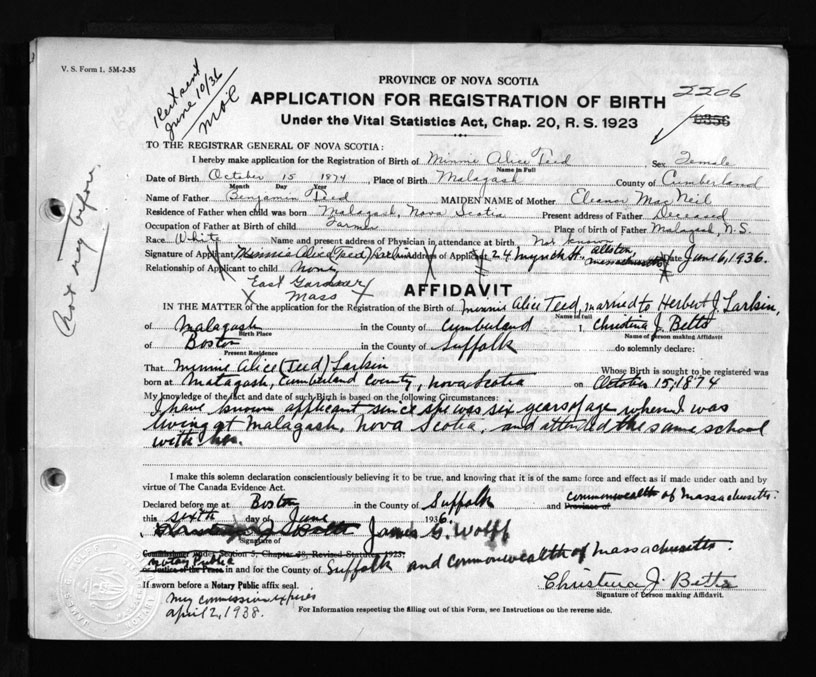 V. S. Form 1. 5M-2-35
June 10/36
Mail
PROVINCE OF NOVA SCOTIA
2206
APPLICATION FOR REGISTRATION OF BIRTH
Under the Vital Statistics Act, Chap. 20, R. S. 1923
TO THE REGISTRAR GENERAL OF NOVA SCOTIA:
I hereby make application for the Registration of Birth of Minnie Alice Teed Sex Female
Name in Full
Date of Birth October 15 1874 Place of Birth Malagash County of Cumberland
Month Day Year
Name of Father Benjamin Teed MAIDEN NAME of Mother Eleanor MacNeil
Residence of Father when child was born Malagash, Nova Scotia Present address of Father Deceased
Occupation of Father at Birth of child Farmer Place of birth of Father Malagash, N.S.
Race White Name and present address of Physician in attendance at birth Not known
Signature of Applicant Minnie Alice (Teed) Larkin Address of Applicant 24 St. Allston, Massachusetts Date June 6, 1936.
Relationship of Applicant to child none
East Gardner
Mass
Not reg before.
AFFIDAVIT
IN THE MATTER of the application for the Registration of the Birth of Minnie Alice Teed, married to Herbert J. Larkin,
Name in full
of Malagash in the County of Cumberland I, Christina J. Betts
Birth Place Name of person making Affidavit
of Boston in the County of Suffolk do solemnly declare:
Present Residence
That Minnie Alice (Teed) Larkin Whose Birth is sought to be registered was
born at Malagash, Cumberland County, Nova Scotia on October 15, 1874
My knowledge of the fact and date of such Birth is based on the following Circumstances:
I have known applicant since she was six years of age when I was
living at Malagash, Nova Scotia, and attended the same school
with her.
I make this solemn declaration conscientiously believing it to be true, and knowing that it is of the same force and effect as if made under oath and by
virtue of The Canada Evidence Act.
Declared before me at Boston in the County of Suffolk and Province of Commonwealth of Massachusetts.
this sixth day of June 1936.
James G. Wolff
Signature of
Commissioner under Section 3, Chapter 38, Revised Statutes 1923
Notary Public
or Justice of the Peace in and for the County of Suffolk and Commonwealth of Massachusetts.
If sworn before a Notary Public affix seal.
Christina J. Betts
Signature of Person making Affidavit.
My commission expires
April 2, 1938.
For Information respecting the filling out of this Form, see Instructions on the reverse side.